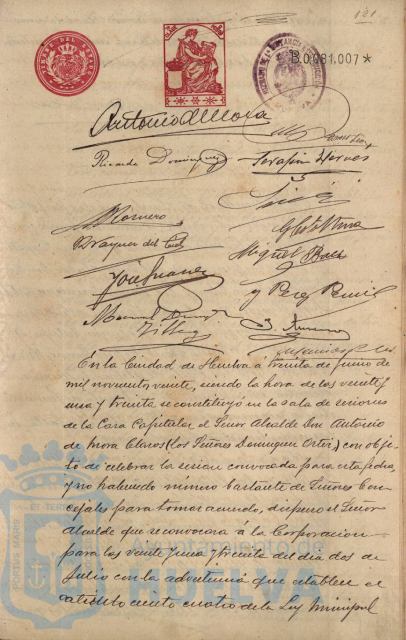 121
TIMBRE DEL ESTADO
B.0,081,007*
Antonio de Mora
Ricardo Dominguez
Serafin
Romero
Braquer del
Miguel Baez
José Suarez
y Perez
Manuel
En la Ciudad de Huelva á treinta de junio de
mil novecientos veinte, siendo la hora de las veinte y
una y treinta se constituyó en la sala de sesiones
de la Casa Capitular el Señor Alcalde Don Antonio
de Mora Claros (los Señores Dominguez Ortiz) con obje-
to de celebrar la sesion convocada para esta fecha,
y no habiendo número bastante de Señores Con-
cejales para tomar acuerdo, dispuso el Señor
Alcalde que se reconvocara á la Corporacion
para las veinte y una y treinta del dia dos de
Julio con la advertencia que establece el
artículo ciento cuatro de la Ley Municipal
PORTUS MARIS ET TERR
HUELVA